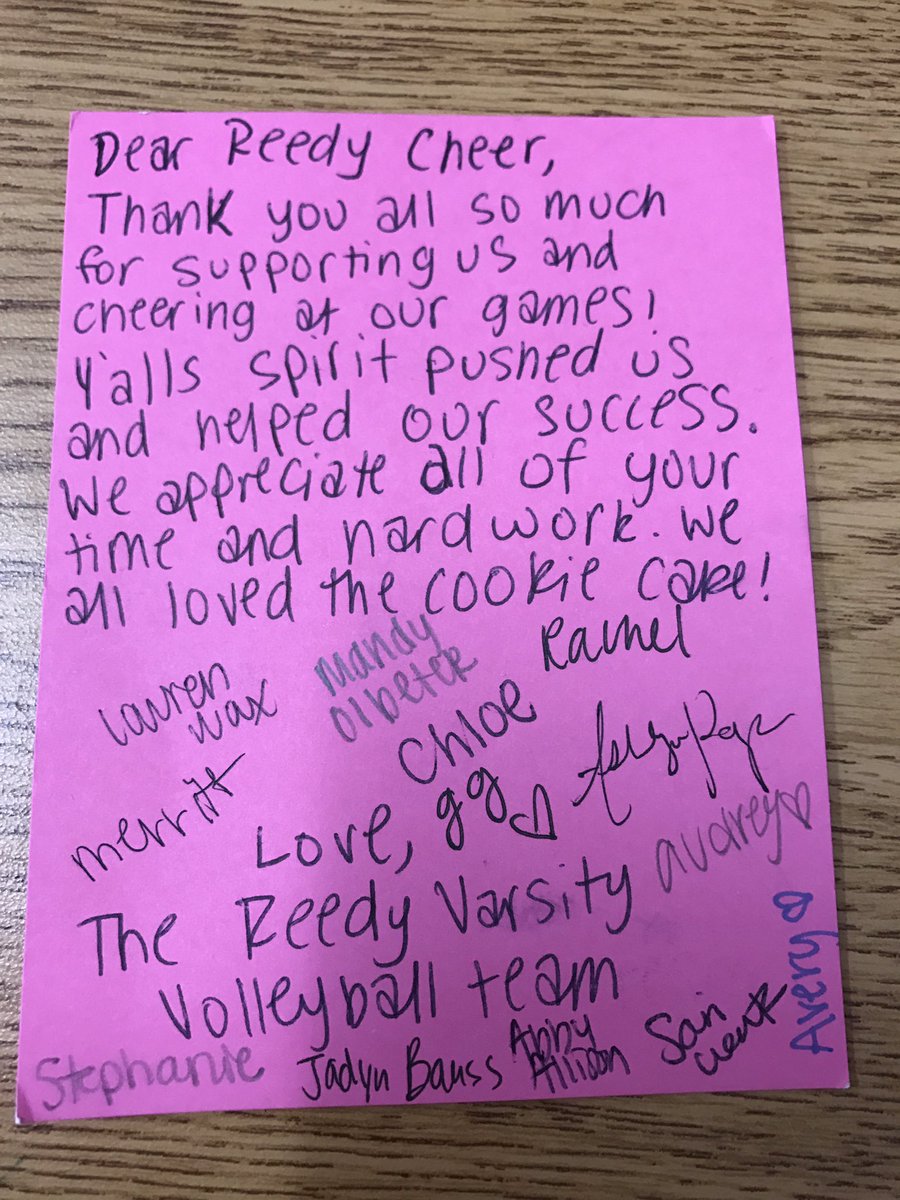 Dear Reedy Cheer,
Thank you all so much
for supporting us and
cheering at our games!
Y'alls spirit pushed us
and helped our success.
We appreciate all of your
time and hard work. We
all loved the cookie cake!
Rachel
Mandy
Olbeter
Lauren
Wax
Chloe
merritt
gg
Love,
audrey
The Reedy Varsity
Volleyball team
Avery
Stephanie
Jadyn Bauss
Abby
Allison